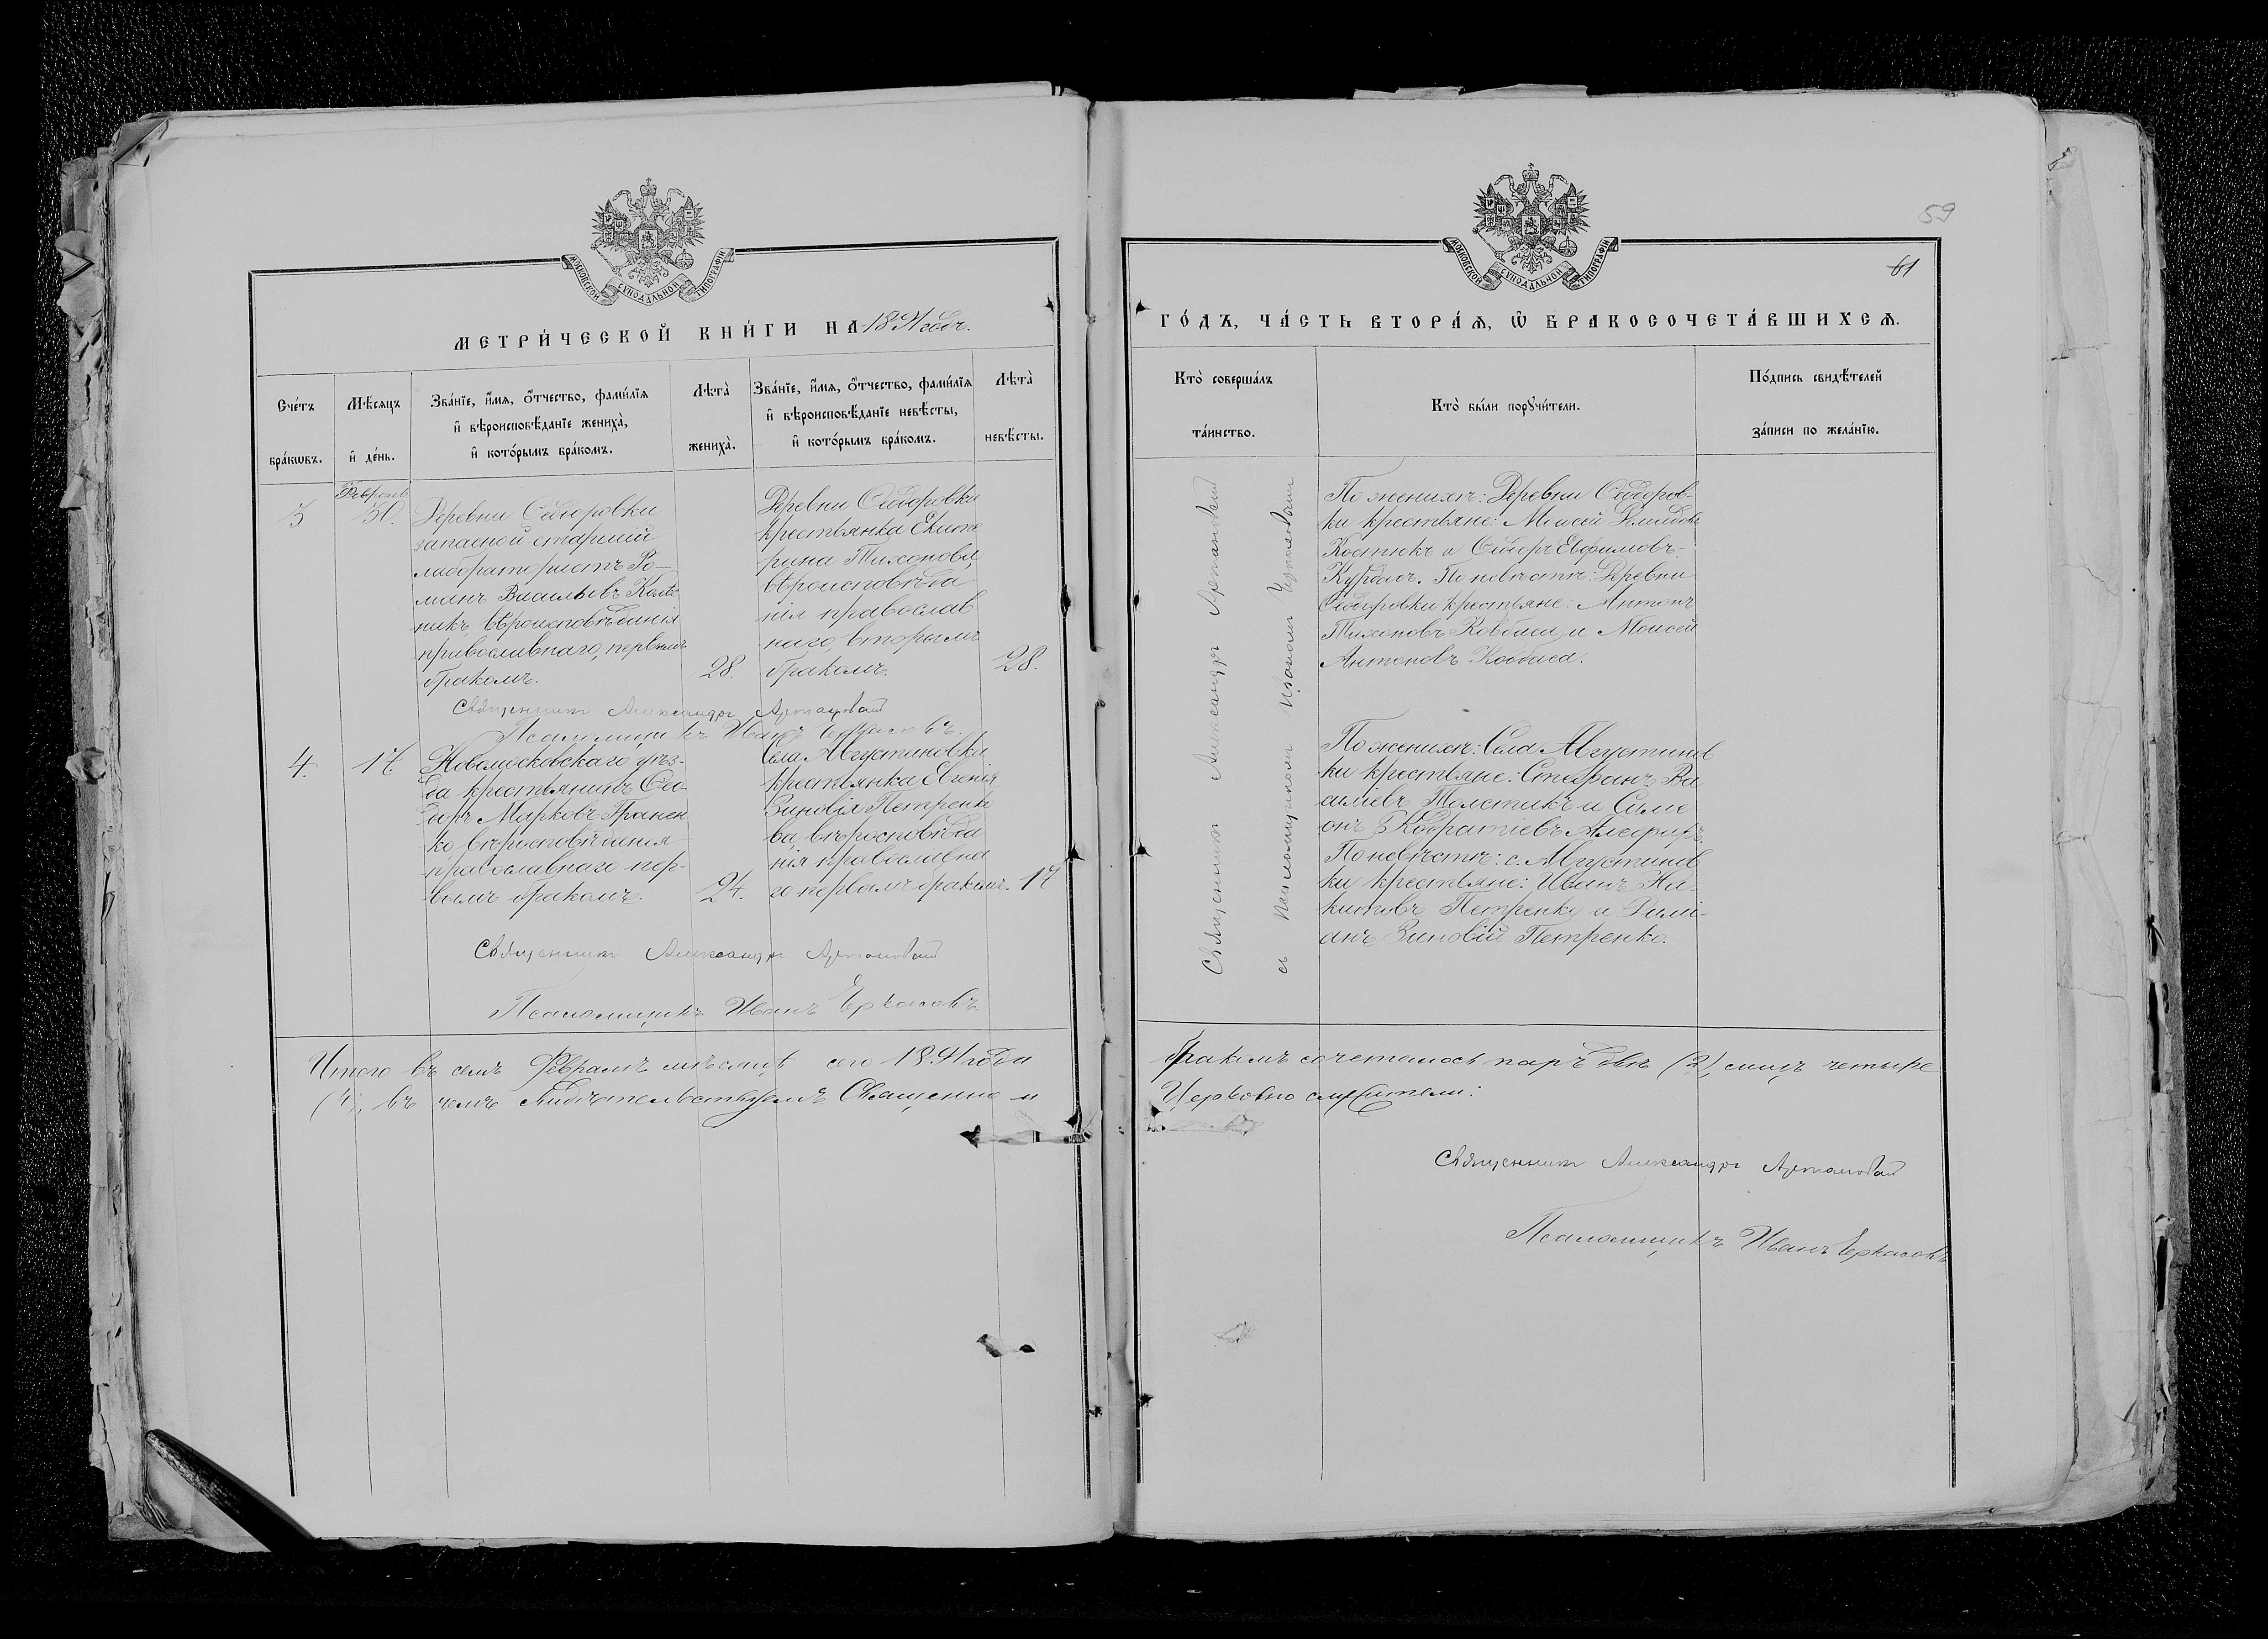 МОСКОВСКОЙ СѴНОДАЛЬНОЙ ТИПОГРАФІИ
МЕТРИ́ЧЕСКОЙ КНИ́ГИ НА 1891 годъ.
Сче́тъ бра́кѡвъ.
Мѣ́сяцъ и҆ де́нь.
Зва́нїе, и҆́мѧ, ѻ҆́тчество, фами́лїѧ
и҆ вѣроисповѣ́данїе жениха̀,
и҆ кото́рымъ бра́комъ.
Лѣта̀ жениха̀.
Зва́нїе, и҆́мѧ, ѻ҆́тчество, фами́лїѧ
и҆ вѣроисповѣ́данїе невѣ́сты,
и҆ кото́рымъ бра́комъ.
Лѣта̀ невѣ́сты.
3
Деревни Сидоровки
запасной старшій
лаборатористъ Ро-
манъ Васильевъ
никъ, вѣроисповѣданія
православнаго, первымъ
бракомъ.
28.
Деревни Сидоровки
крестьянка Екате
рина Тихонова,
вѣроисповѣда
нія православ
наго, вторымъ
бракомъ.
28.
Священникъ Александръ
Псаломщикъ Иванъ Черкасовъ.
4.
17
Новомосковскаго уѣз-
да крестьянинъ
Марковъ
ко вѣроисповѣданія
православнаго пер-
вымъ бракомъ.
24.
Села Августиновки
крестьянка Евгенія
Зиновія Петренко
ва, вѣроисповѣда
нія православна
го первымъ бракомъ.
17
Священникъ Александръ
Псаломщикъ Иванъ Черкасовъ
Итого въ семъ Февралѣ мѣсяцѣ сего 1891 года
(4), въ чемъ свидѣтельствуемъ Священно и
59
61
МОСКОВСКОЙ СѴНОДАЛЬНОЙ ТИПОГРАФІИ
ГО́ДЪ, ЧА́СТЬ ВТОРА́Ѧ, Ѽ БРАКОСОЧЕТА́ВШИХСѦ.
Кто̀ соверша́лъ
та́инство.
Кто̀ бы́ли порꙋчи́тели.
По́дпись свидѣ́телей
за́писи по жела́нїю.
Священникъ Александръ
съ псаломщикомъ Іоанномъ Черкасовымъ
По женихѣ: Деревни Сидоров-
ки крестьяне: Моисей
Костюкъ и Сидоръ Евфимовъ
По невѣстѣ: Деревни
Сидоровки крестьяне: Антонъ
Тихоновъ Ковбаса и Моисей
Антоновъ Ковбаса.
По женихѣ: Села Августинов
ки крестьяне: Стефанъ Ва
силіевъ Толстикъ и Симе
онъ
По невѣстѣ: с. Августинов
ки крестьяне: Иванъ Ни-
китовъ Петренко и
анъ Зиновій Петренко.
бракомъ сочеталось паръ двѣ (2), лицъ четыре
Церковно служители:
Священникъ Александръ
Псаломщикъ Иванъ Черкасовъ